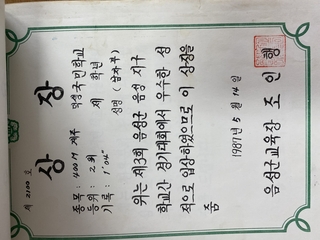 제 2100 호
상 장
종목: 400M 계주
등위: 2위
기록: 1'04"
국민학교
제 학년
성명 (남자부)
위는 제3회 음성군 음성 지구
학교간 경기대회에서 우수한 성
적으로 입상하였으므로 이 상장을
줌
1987년 5월 14일
음성군교육장 조 인